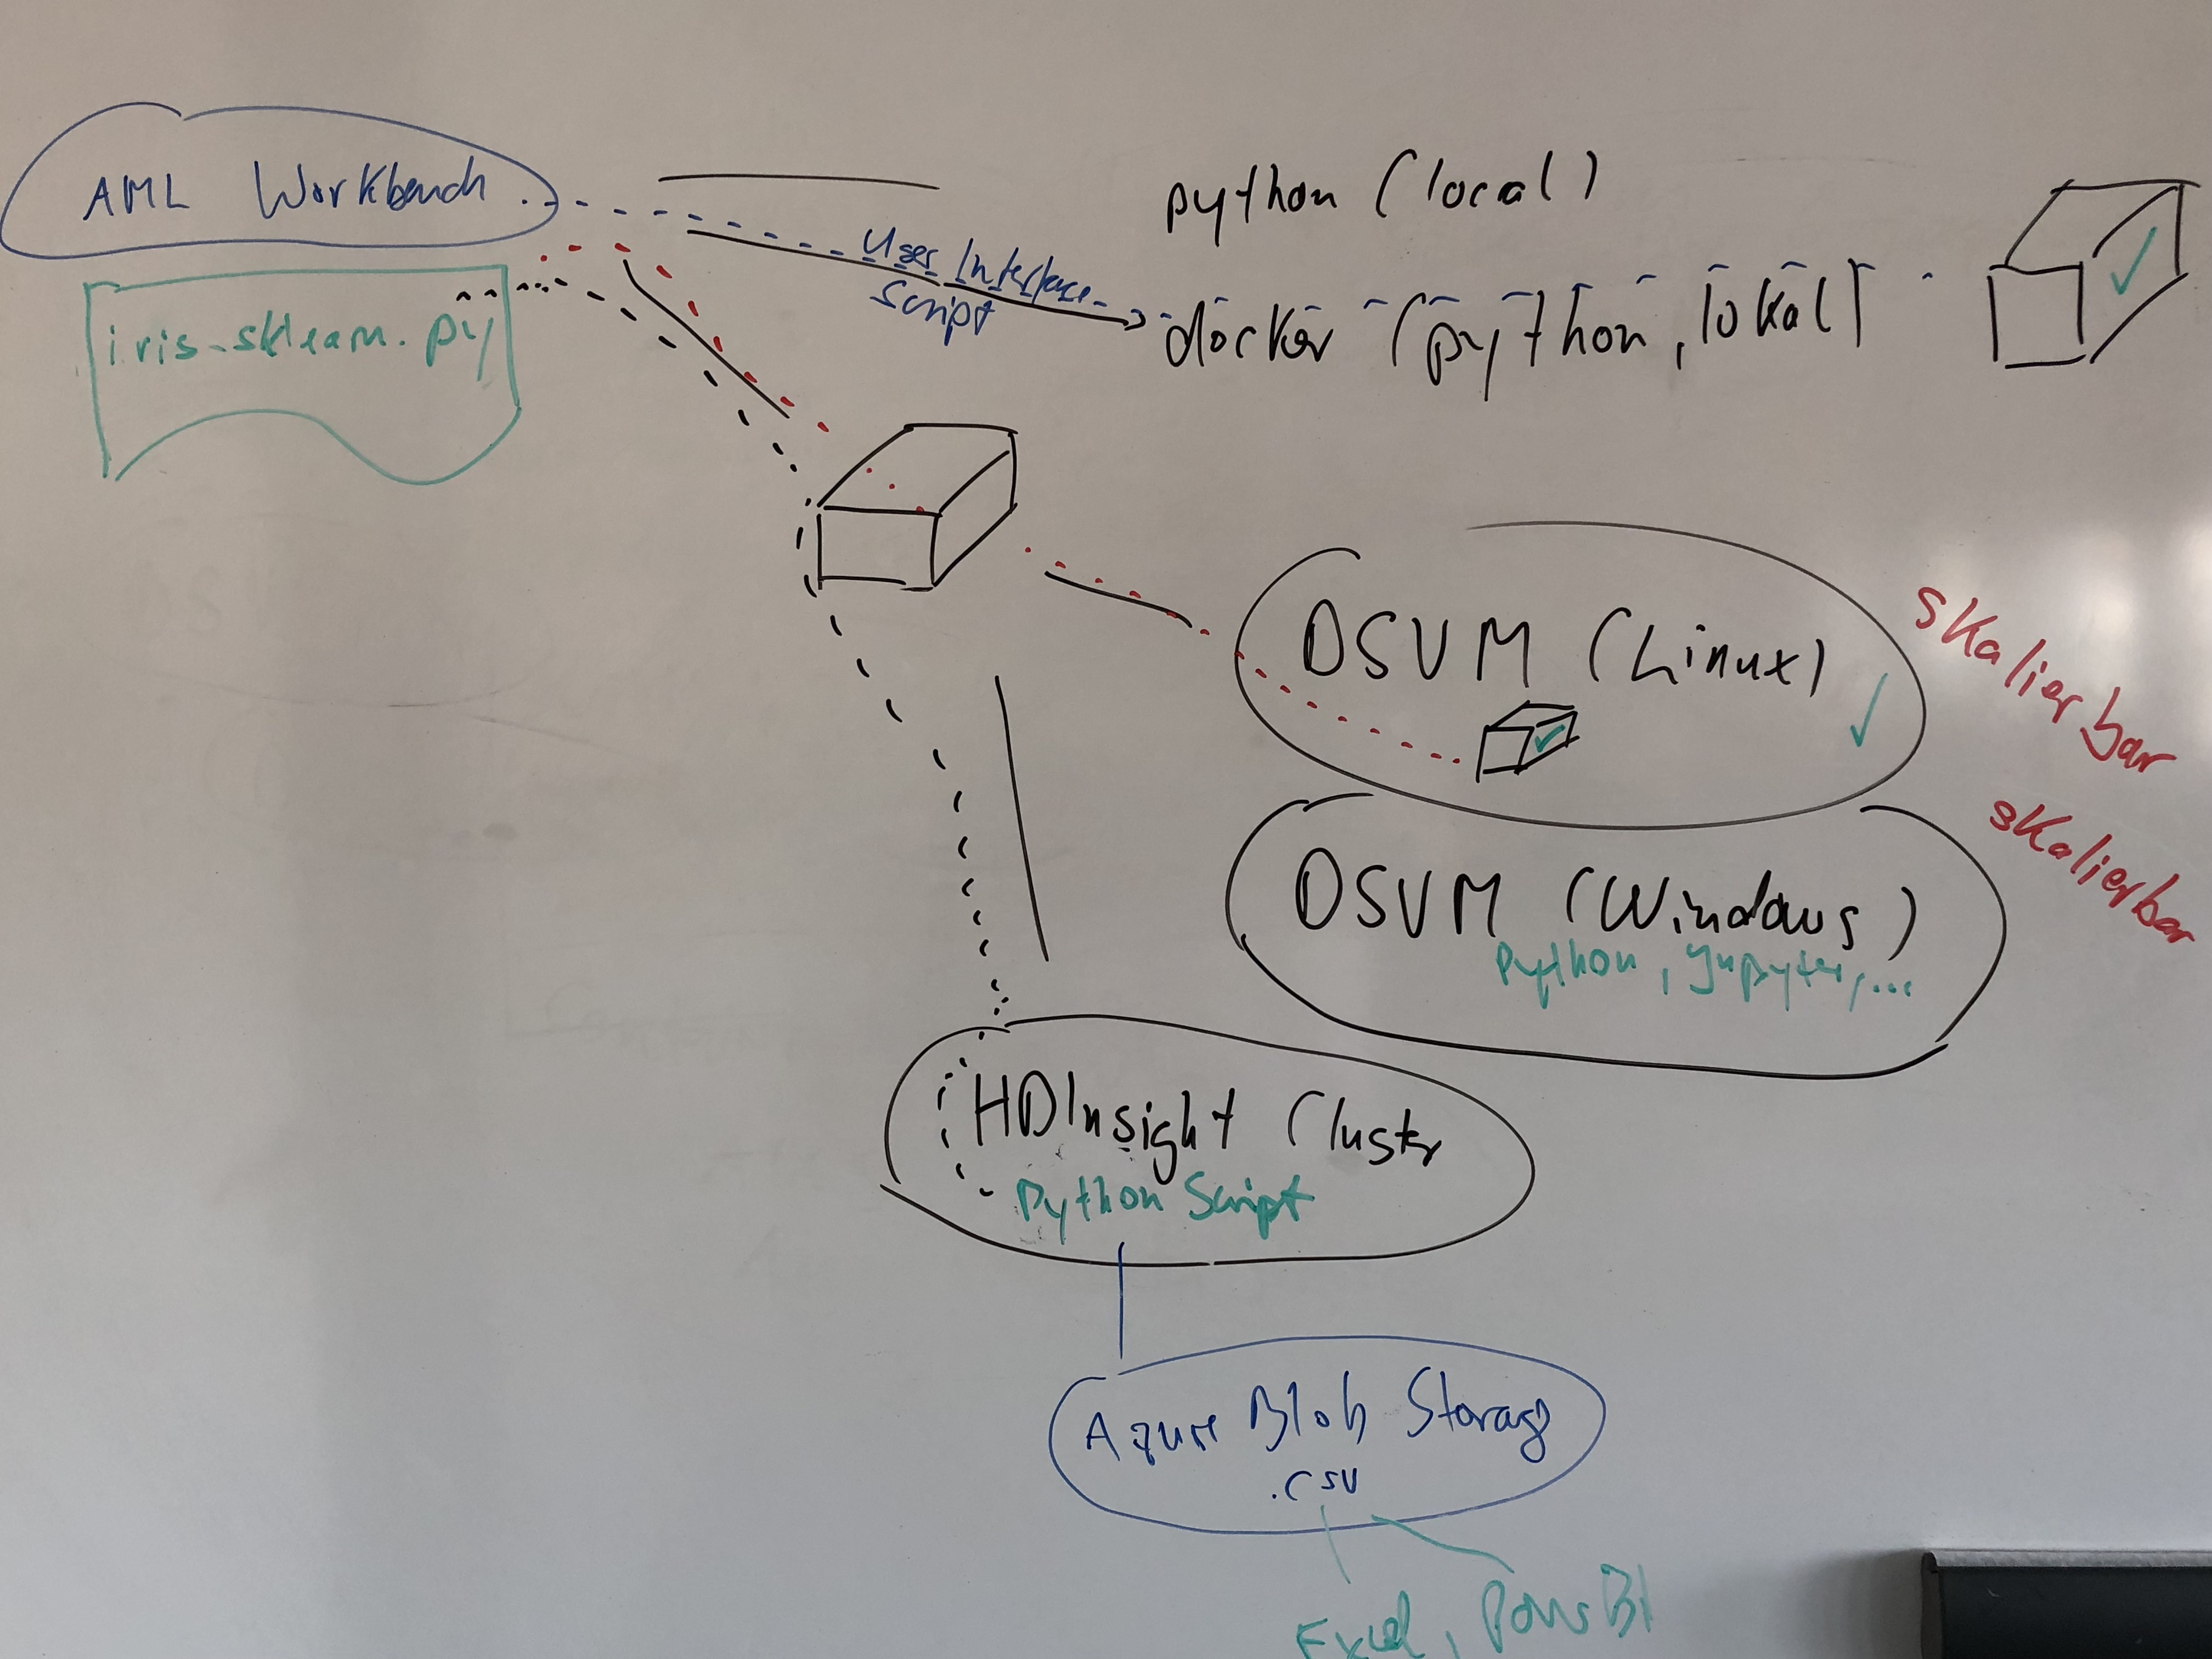 AML Workbench
iris-sklearn.py
python (local)
User Interface
Script
docker (python, lokal)
DSVM (Linux)
skalierbar
DSVM (Windows)
Python, Jupyter,...
skalierbar
HDInsight Cluster
Python Script
Azure Blob Storage
.csv
Excel, PowerBI